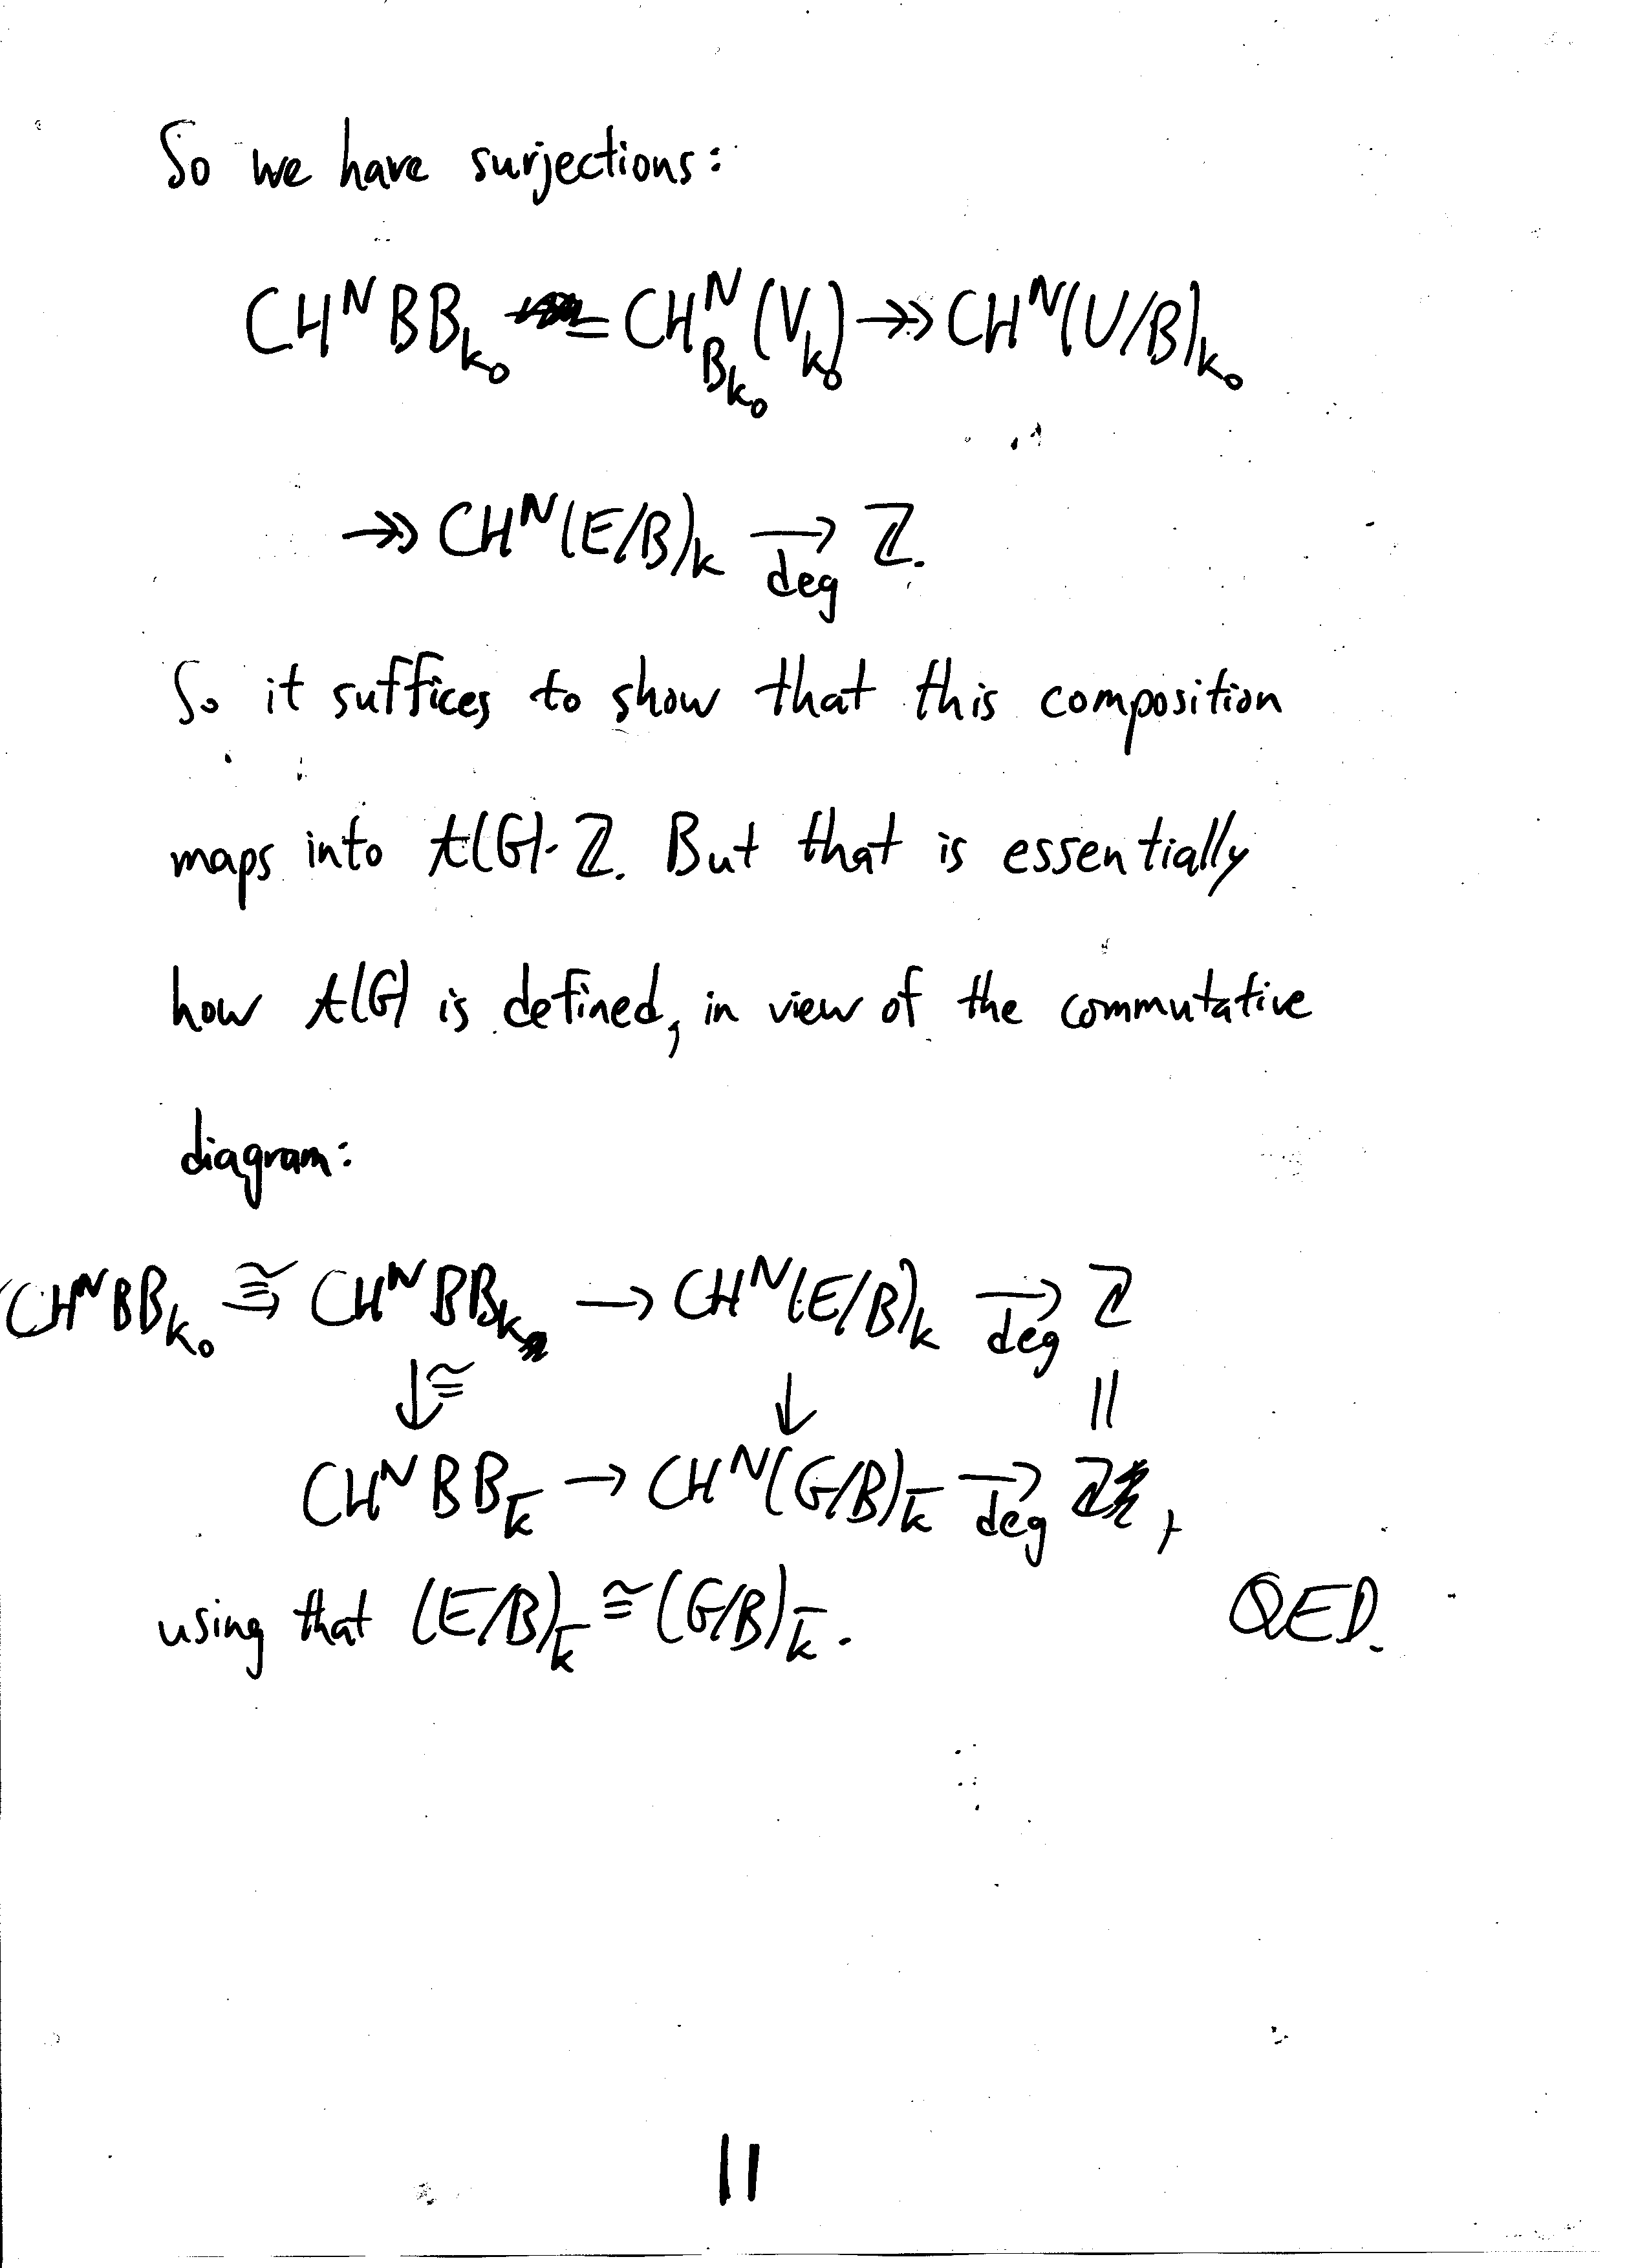 So we have surjections:
CH^N BB_{k_0} = CH^N_{B_{k_0}}(V_{k_0}) ↠ CH^N(U/B)_{k_0}
↠ CH^N(E/B)_k →_{deg} ℤ.
So it suffices to show that this composition
maps into t(G)·ℤ. But that is essentially
how t(G) is defined, in view of the commutative
diagram:
CH^N BB_{k_0} ≅→ CH^N BB_k → CH^N(E/B)_k →_{deg} ℤ
↓≅ ↓ ||
CH^N BB_{k̄} → CH^N(G/B)_{k̄} →_{deg} ℤ,
using that (E/B)_{k̄} ≅ (G/B)_{k̄}. QED.
11